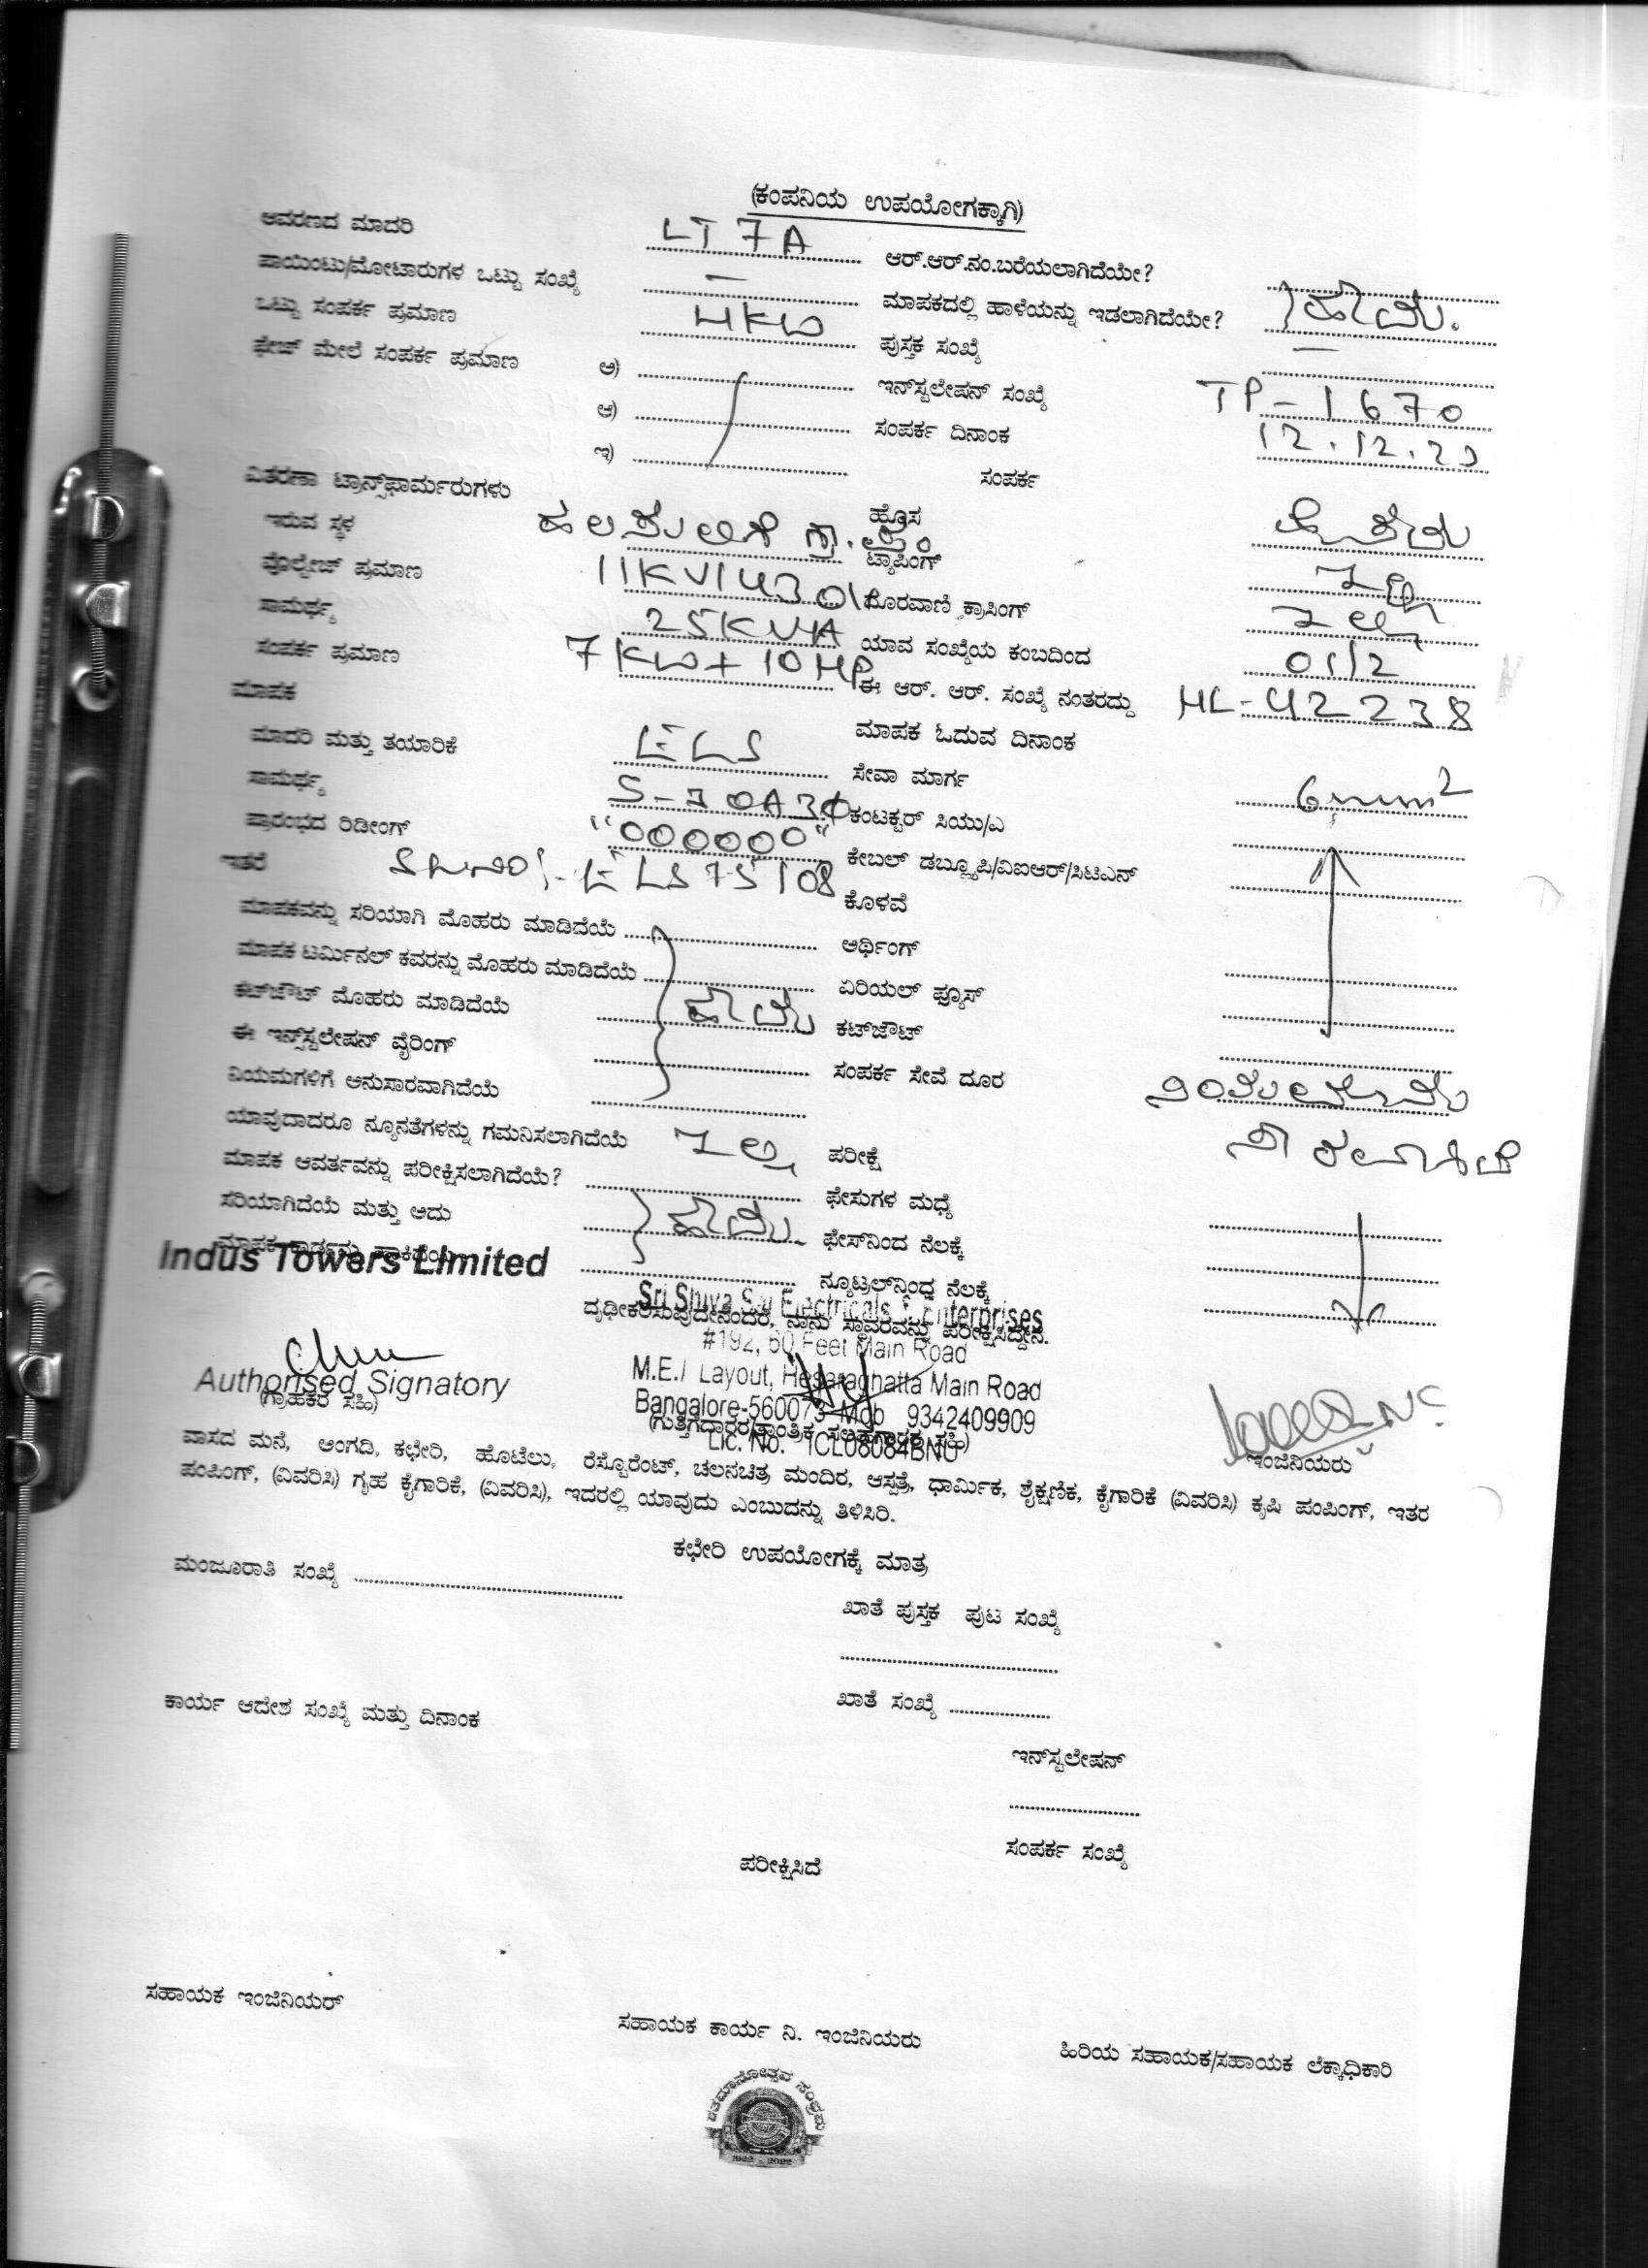 (ಕಂಪನಿಯ ಉಪಯೋಗಕ್ಕಾಗಿ)
ಆವರಣದ ಮಾದರಿ LT 7A ಆರ್.ಆರ್.ನಂ.ಬರೆಯಲಾಗಿದೆಯೇ?
ಪಾಯಿಂಟು/ಮೋಟಾರುಗಳ ಒಟ್ಟು ಸಂಖ್ಯೆ — ಮಾಪಕದಲ್ಲಿ ಹಾಳೆಯನ್ನು ಇಡಲಾಗಿದೆಯೇ? ಹೌದು.
ಒಟ್ಟು ಸಂಪರ್ಕ ಪ್ರಮಾಣ 4KW ಪುಸ್ತಕ ಸಂಖ್ಯೆ —
ಫೇಜ್ ಮೇಲೆ ಸಂಪರ್ಕ ಪ್ರಮಾಣ ಅ) ಇನ್‌ಸ್ಟಲೇಷನ್ ಸಂಖ್ಯೆ TP-1670
ಆ) ಸಂಪರ್ಕ ದಿನಾಂಕ 12.12.23
ಇ) ಸಂಪರ್ಕ
ವಿತರಣಾ ಟ್ರಾನ್ಸ್‌ಫಾರ್ಮರುಗಳು ಹೊಸ
ಇರುವ ಸ್ಥಳ ಟ್ಯಾಪಿಂಗ್
ವೊಲ್ಟೇಜ್ ಪ್ರಮಾಣ 11KV/430V ದೊರವಾಣಿ ಕ್ರಾಸಿಂಗ್ ಇಲ್ಲ
ಸಾಮರ್ಥ್ಯ 25KVA ಯಾವ ಸಂಖ್ಯೆಯ ಕಂಬದಿಂದ 01/2
ಸಂಪರ್ಕ ಪ್ರಮಾಣ 7KW+10HP ಈ ಆರ್. ಆರ್. ಸಂಖ್ಯೆ ನಂತರದ್ದು HL-42238
ಮಾಪಕ ಮಾಪಕ ಓದುವ ದಿನಾಂಕ
ಮಾದರಿ ಮತ್ತು ತಯಾರಿಕೆ ELS ಸೇವಾ ಮಾರ್ಗ 6mm²
ಸಾಮರ್ಥ್ಯ ಕಂಟಕ್ಟರ್ ಸಿಯು/ಎ
ಪ್ರಾರಂಭದ ರಿಡೀಂಗ್ "000000" ಕೇಬಲ್ ಡಬ್ಲ್ಯೂಪಿ/ವಿಐಆರ್/ಸಿಟಿಎನ್
ಇತರೆ ELS75108 ಕೊಳವೆ
ಮಾಪಕವನ್ನು ಸರಿಯಾಗಿ ಮೊಹರು ಮಾಡಿದೆಯೆ ಅರ್ಥಿಂಗ್
ಮಾಪಕ ಟರ್ಮಿನಲ್ ಕವರನ್ನು ಮೊಹರು ಮಾಡಿದೆಯೆ ಏರಿಯಲ್ ಫ್ಯೂಸ್
ಕಟ್‌ಔಟ್ ಮೊಹರು ಮಾಡಿದೆಯೆ ಹೌದು ಕಟ್‌ಔಟ್
ಈ ಇನ್ಸ್‌ಸ್ಟಲೇಷನ್ ವೈರಿಂಗ್ ಸಂಪರ್ಕ ಸೇವೆ ದೂರ
ನಿಯಮಗಳಿಗೆ ಅನುಸಾರವಾಗಿದೆಯೆ
ಯಾವುದಾದರೂ ನ್ಯೂನತೆಗಳನ್ನು ಗಮನಿಸಲಾಗಿದೆಯೆ ಇಲ್ಲ ಪರೀಕ್ಷೆ
ಮಾಪಕ ಆವರ್ತವನ್ನು ಪರೀಕ್ಷಿಸಲಾಗಿದೆಯೆ? ಫೇಸುಗಳ ಮಧ್ಯೆ
ಸರಿಯಾಗಿದೆಯೆ ಮತ್ತು ಅದು ಹೌದು ಫೇಸ್‌ನಿಂದ ನೆಲಕ್ಕೆ
ನ್ಯೂಟ್ರಲ್‌ನಿಂದ ನೆಲಕ್ಕೆ
Indus Towers Limited
Sri Shiva Sai Electricals Enterprises
ದೃಢೀಕರಿಸುವುದೇನೆಂದರೆ, ನಾನು ಸ್ಥಾವರವನ್ನು ಪರೀಕ್ಷಿಸಿದ್ದೇನೆ.
#192, 60 Feet Main Road
M.E.I Layout, Hesaraghatta Main Road
Authorised Signatory
(ಗ್ರಾಹಕರ ಸಹಿ)
Bangalore-560073 Mob 9342409909
Lic. No. 1CL08084BNU
ಇಂಜಿನಿಯರು
ವಾಸದ ಮನೆ, ಅಂಗಡಿ, ಕಛೇರಿ, ಹೊಟೆಲು, ರೆಸ್ಟೊರೆಂಟ್, ಚಲನಚಿತ್ರ ಮಂದಿರ, ಆಸ್ಪತ್ರೆ, ಧಾರ್ಮಿಕ, ಶೈಕ್ಷಣಿಕ, ಕೈಗಾರಿಕೆ (ವಿವರಿಸಿ) ಕೃಷಿ ಪಂಪಿಂಗ್, ಇತರ
ಪಂಪಿಂಗ್, (ವಿವರಿಸಿ) ಗೃಹ ಕೈಗಾರಿಕೆ, (ವಿವರಿಸಿ), ಇದರಲ್ಲಿ ಯಾವುದು ಎಂಬುದನ್ನು ತಿಳಿಸಿರಿ.
ಕಛೇರಿ ಉಪಯೋಗಕ್ಕೆ ಮಾತ್ರ
ಮಂಜೂರಾತಿ ಸಂಖ್ಯೆ
ಖಾತೆ ಪುಸ್ತಕ ಪುಟ ಸಂಖ್ಯೆ
ಖಾತೆ ಸಂಖ್ಯೆ
ಕಾರ್ಯ ಆದೇಶ ಸಂಖ್ಯೆ ಮತ್ತು ದಿನಾಂಕ
ಇನ್‌ಸ್ಟಲೇಷನ್
ಸಂಪರ್ಕ ಸಂಖ್ಯೆ
ಪರೀಕ್ಷಿಸಿದೆ
ಸಹಾಯಕ ಇಂಜಿನಿಯರ್
ಸಹಾಯಕ ಕಾರ್ಯ ನಿ. ಇಂಜಿನಿಯರು
ಹಿರಿಯ ಸಹಾಯಕ/ಸಹಾಯಕ ಲೆಕ್ಕಾಧಿಕಾರಿ
ಶತಮಾನೋತ್ಸವ ಸಂಭ್ರಮ
1922 - 2022